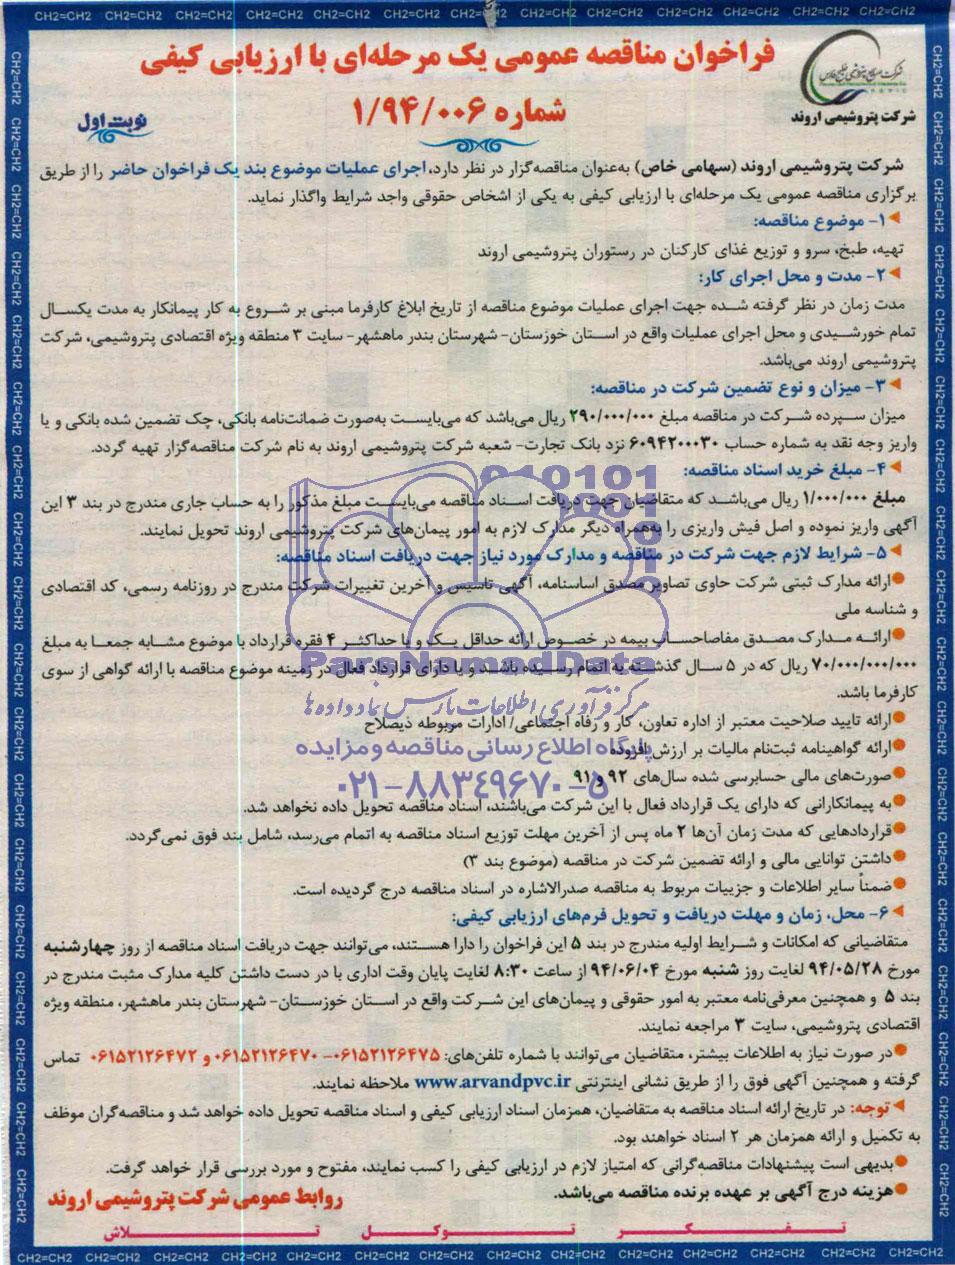 CH2=CH2 CH2=CH2 CH2=CH2 CH2=CH2 CH2=CH2 CH2=CH2 CH2=CH2 CH2=CH2 CH2=CH2 CH2=CH2 CH2=CH2 CH2=CH2 CH2=CH2
شرکت پتروشیمی اروند
فراخوان مناقصه عمومی یک مرحله‌ای با ارزیابی کیفی
شماره ۱/۹۴/۰۰۶
نوبت اول
شرکت پتروشیمی اروند (سهامی خاص) به‌عنوان مناقصه‌گزار در نظر دارد، اجرای عملیات موضوع بند یک فراخوان حاضر را از طریق
برگزاری مناقصه عمومی یک مرحله‌ای با ارزیابی کیفی به یکی از اشخاص حقوقی واجد شرایط واگذار نماید.
۱- موضوع مناقصه:
تهیه، طبخ، سرو و توزیع غذای کارکنان در رستوران پتروشیمی اروند
۲- مدت و محل اجرای کار:
مدت زمان در نظر گرفته شده جهت اجرای عملیات موضوع مناقصه از تاریخ ابلاغ کارفرما مبنی بر شروع به کار پیمانکار به مدت یکسال
تمام خورشیدی و محل اجرای عملیات واقع در استان خوزستان- شهرستان بندر ماهشهر- سایت ۳ منطقه ویژه اقتصادی پتروشیمی، شرکت
پتروشیمی اروند می‌باشد.
۳- میزان و نوع تضمین شرکت در مناقصه:
میزان سپرده شرکت در مناقصه مبلغ ۲۹۰/۰۰۰/۰۰۰ ریال می‌باشد که می‌بایست به‌صورت ضمانت‌نامه بانکی، چک تضمین شده بانکی و یا
واریز وجه نقد به شماره حساب ۶۰۹۴۲۰۰۰۳۰ نزد بانک تجارت- شعبه شرکت پتروشیمی اروند به نام شرکت مناقصه‌گزار تهیه گردد.
۴- مبلغ خرید اسناد مناقصه:
مبلغ ۱/۰۰۰/۰۰۰ ریال می‌باشد که متقاضیان جهت دریافت اسناد مناقصه می‌بایست مبلغ مذکور را به حساب جاری مندرج در بند ۳ این
آگهی واریز نموده و اصل فیش واریزی را به‌همراه دیگر مدارک لازم به امور پیمان‌های شرکت پتروشیمی اروند تحویل نمایند.
۵- شرایط لازم جهت شرکت در مناقصه و مدارک مورد نیاز جهت دریافت اسناد مناقصه:
●ارائه مدارک ثبتی شرکت حاوی تصاویر مصدق اساسنامه، آگهی تاسیس و آخرین تغییرات شرکت مندرج در روزنامه رسمی، کد اقتصادی
و شناسه ملی
●ارائه مدارک مصدق مفاصاحساب بیمه در خصوص ارائه حداقل یک و یا حداکثر ۴ فقره قرارداد با موضوع مشابه جمعا به مبلغ
۷۰/۰۰۰/۰۰۰/۰۰۰ ریال که در ۵ سال گذشته به اتمام رسیده باشند و یا دارای قرارداد فعال در زمینه موضوع مناقصه با ارائه گواهی از سوی
کارفرما باشد.
●ارائه تایید صلاحیت معتبر از اداره تعاون، کار و رفاه اجتماعی/ ادارات مربوطه ذیصلاح
●ارائه گواهینامه ثبت‌نام مالیات بر ارزش افزوده
●صورت‌های مالی حسابرسی شده سال‌های ۹۲ و ۹۱
●به پیمانکارانی که دارای یک قرارداد فعال با این شرکت می‌باشند، اسناد مناقصه تحویل داده نخواهد شد.
●قراردادهایی که مدت زمان آن‌ها ۲ ماه پس از آخرین مهلت توزیع اسناد مناقصه به اتمام می‌رسد، شامل بند فوق نمی‌گردد.
●داشتن توانایی مالی و ارائه تضمین شرکت در مناقصه (موضوع بند ۳)
●ضمناً سایر اطلاعات و جزییات مربوط به مناقصه صدرالاشاره در اسناد مناقصه درج گردیده است.
۶- محل، زمان و مهلت دریافت و تحویل فرم‌های ارزیابی کیفی:
متقاضیانی که امکانات و شرایط اولیه مندرج در بند ۵ این فراخوان را دارا هستند، می‌توانند جهت دریافت اسناد مناقصه از روز چهارشنبه
مورخ ۹۴/۰۵/۲۸ لغایت روز شنبه مورخ ۹۴/۰۶/۰۴ از ساعت ۸:۳۰ لغایت پایان وقت اداری با در دست داشتن کلیه مدارک مثبت مندرج در
بند ۵ و همچنین معرفی‌نامه معتبر به امور حقوقی و پیمان‌های این شرکت واقع در استان خوزستان- شهرستان بندر ماهشهر، منطقه ویژه
اقتصادی پتروشیمی، سایت ۳ مراجعه نمایند.
●در صورت نیاز به اطلاعات بیشتر، متقاضیان می‌توانند با شماره تلفن‌های: ۰۶۱۵۲۱۲۶۴۷۵- ۰۶۱۵۲۱۲۶۴۷۰ و ۰۶۱۵۲۱۲۶۴۷۲ تماس
گرفته و همچنین آگهی فوق را از طریق نشانی اینترنتی www.arvandpvc.ir ملاحظه نمایند.
توجه: در تاریخ ارائه اسناد مناقصه به متقاضیان، همزمان اسناد ارزیابی کیفی و اسناد مناقصه تحویل داده خواهد شد و مناقصه‌گران موظف
به تکمیل و ارائه همزمان هر ۲ اسناد خواهند بود.
●بدیهی است پیشنهادات مناقصه‌گرانی که امتیاز لازم در ارزیابی کیفی را کسب نمایند، مفتوح و مورد بررسی قرار خواهد گرفت.
●هزینه درج آگهی بر عهده برنده مناقصه می‌باشد.
روابط عمومی شرکت پتروشیمی اروند
تفکر توکل تلاش
ParsNamadData
مرکز فرآوری اطلاعات پارس نماد داده‌ها
پایگاه اطلاع رسانی مناقصه و مزایده
۰۲۱-۸۸۳۴۹۶۷۰-۵
CH2=CH2 CH2=CH2 CH2=CH2 CH2=CH2 CH2=CH2 CH2=CH2 CH2=CH2 CH2=CH2 CH2=CH2 CH2=CH2 CH2=CH2 CH2=CH2 CH2=CH2